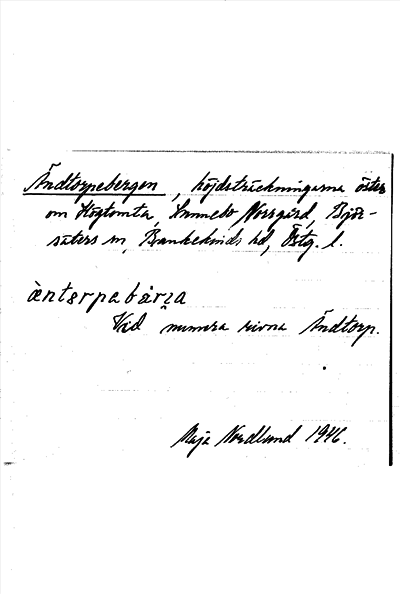 Ändtorpebergen, höjdsträckningarna öster
om Högtomta, Sunnebo Norrgård, Björ-
säters sn, Bankekinds hd, Östg. l.
Vid numera rivna Ändtorp.
Maja Nordlund 1946.